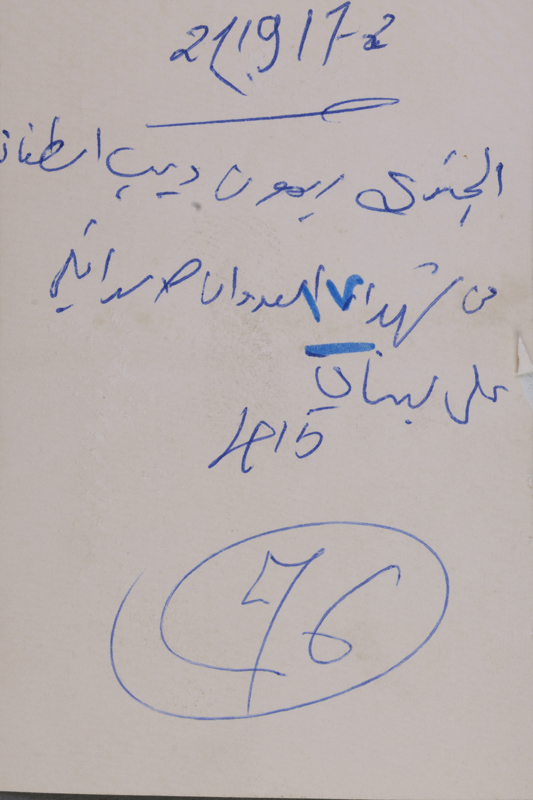 21/9/72
الجندي ريمون ديب اسطفان
من شهداء العدوان الاسرائيلي
١٧
على لبنان
415
76